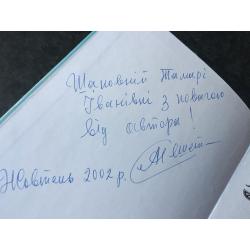 Шановній Тамарі
Іванівні з повагою
від автора!
Жовтень 2002 р.